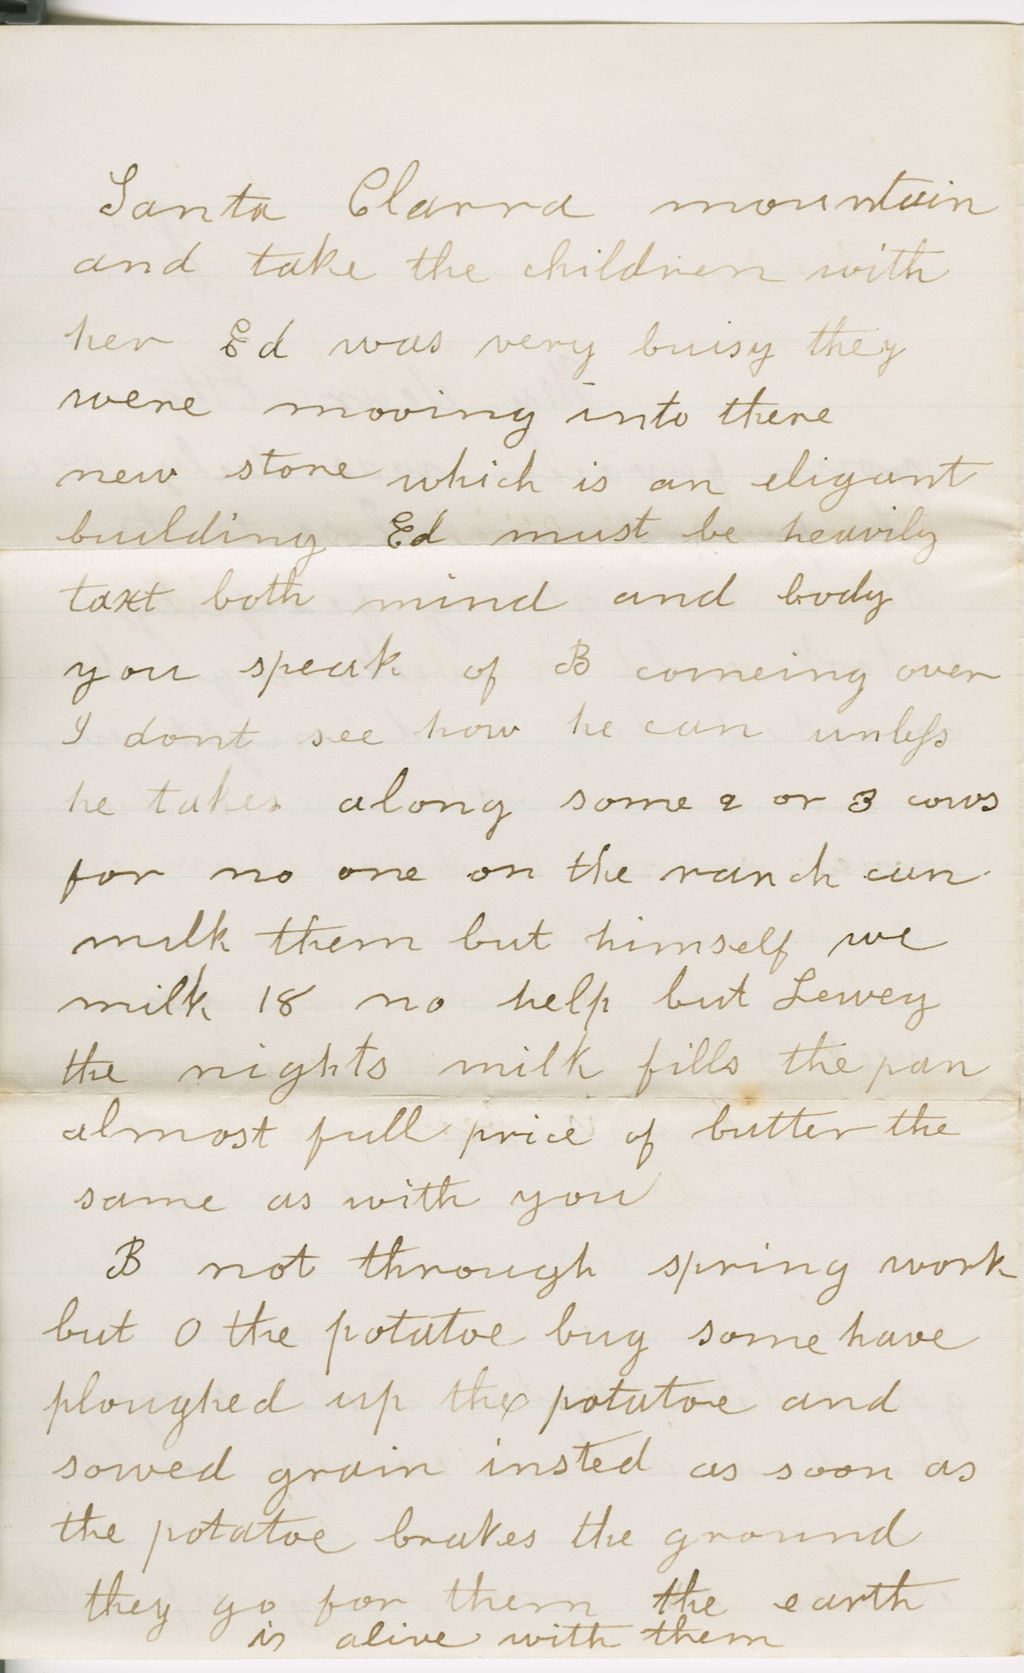 Santa Clarra mountain
and take the children with
her Ed was very buisy they
were mooving into there
new store which is an eligant
building Ed must be heavily
taxt both mind and body
you speak of B comeing over
I dont see how he can unless
he takes along some 2 or 3 cows
for no one on the ranch can
milk them but himself we
milk 18 no help but Lewey
the nights milk fills the pan
almost full price of butter the
same as with you
B not through spring work
but O the potatoe bug some have
ploughed up the potatoe and
sowed grain insted as soon as
the potatoe brakes the ground
they go for them the earth
is alive with them